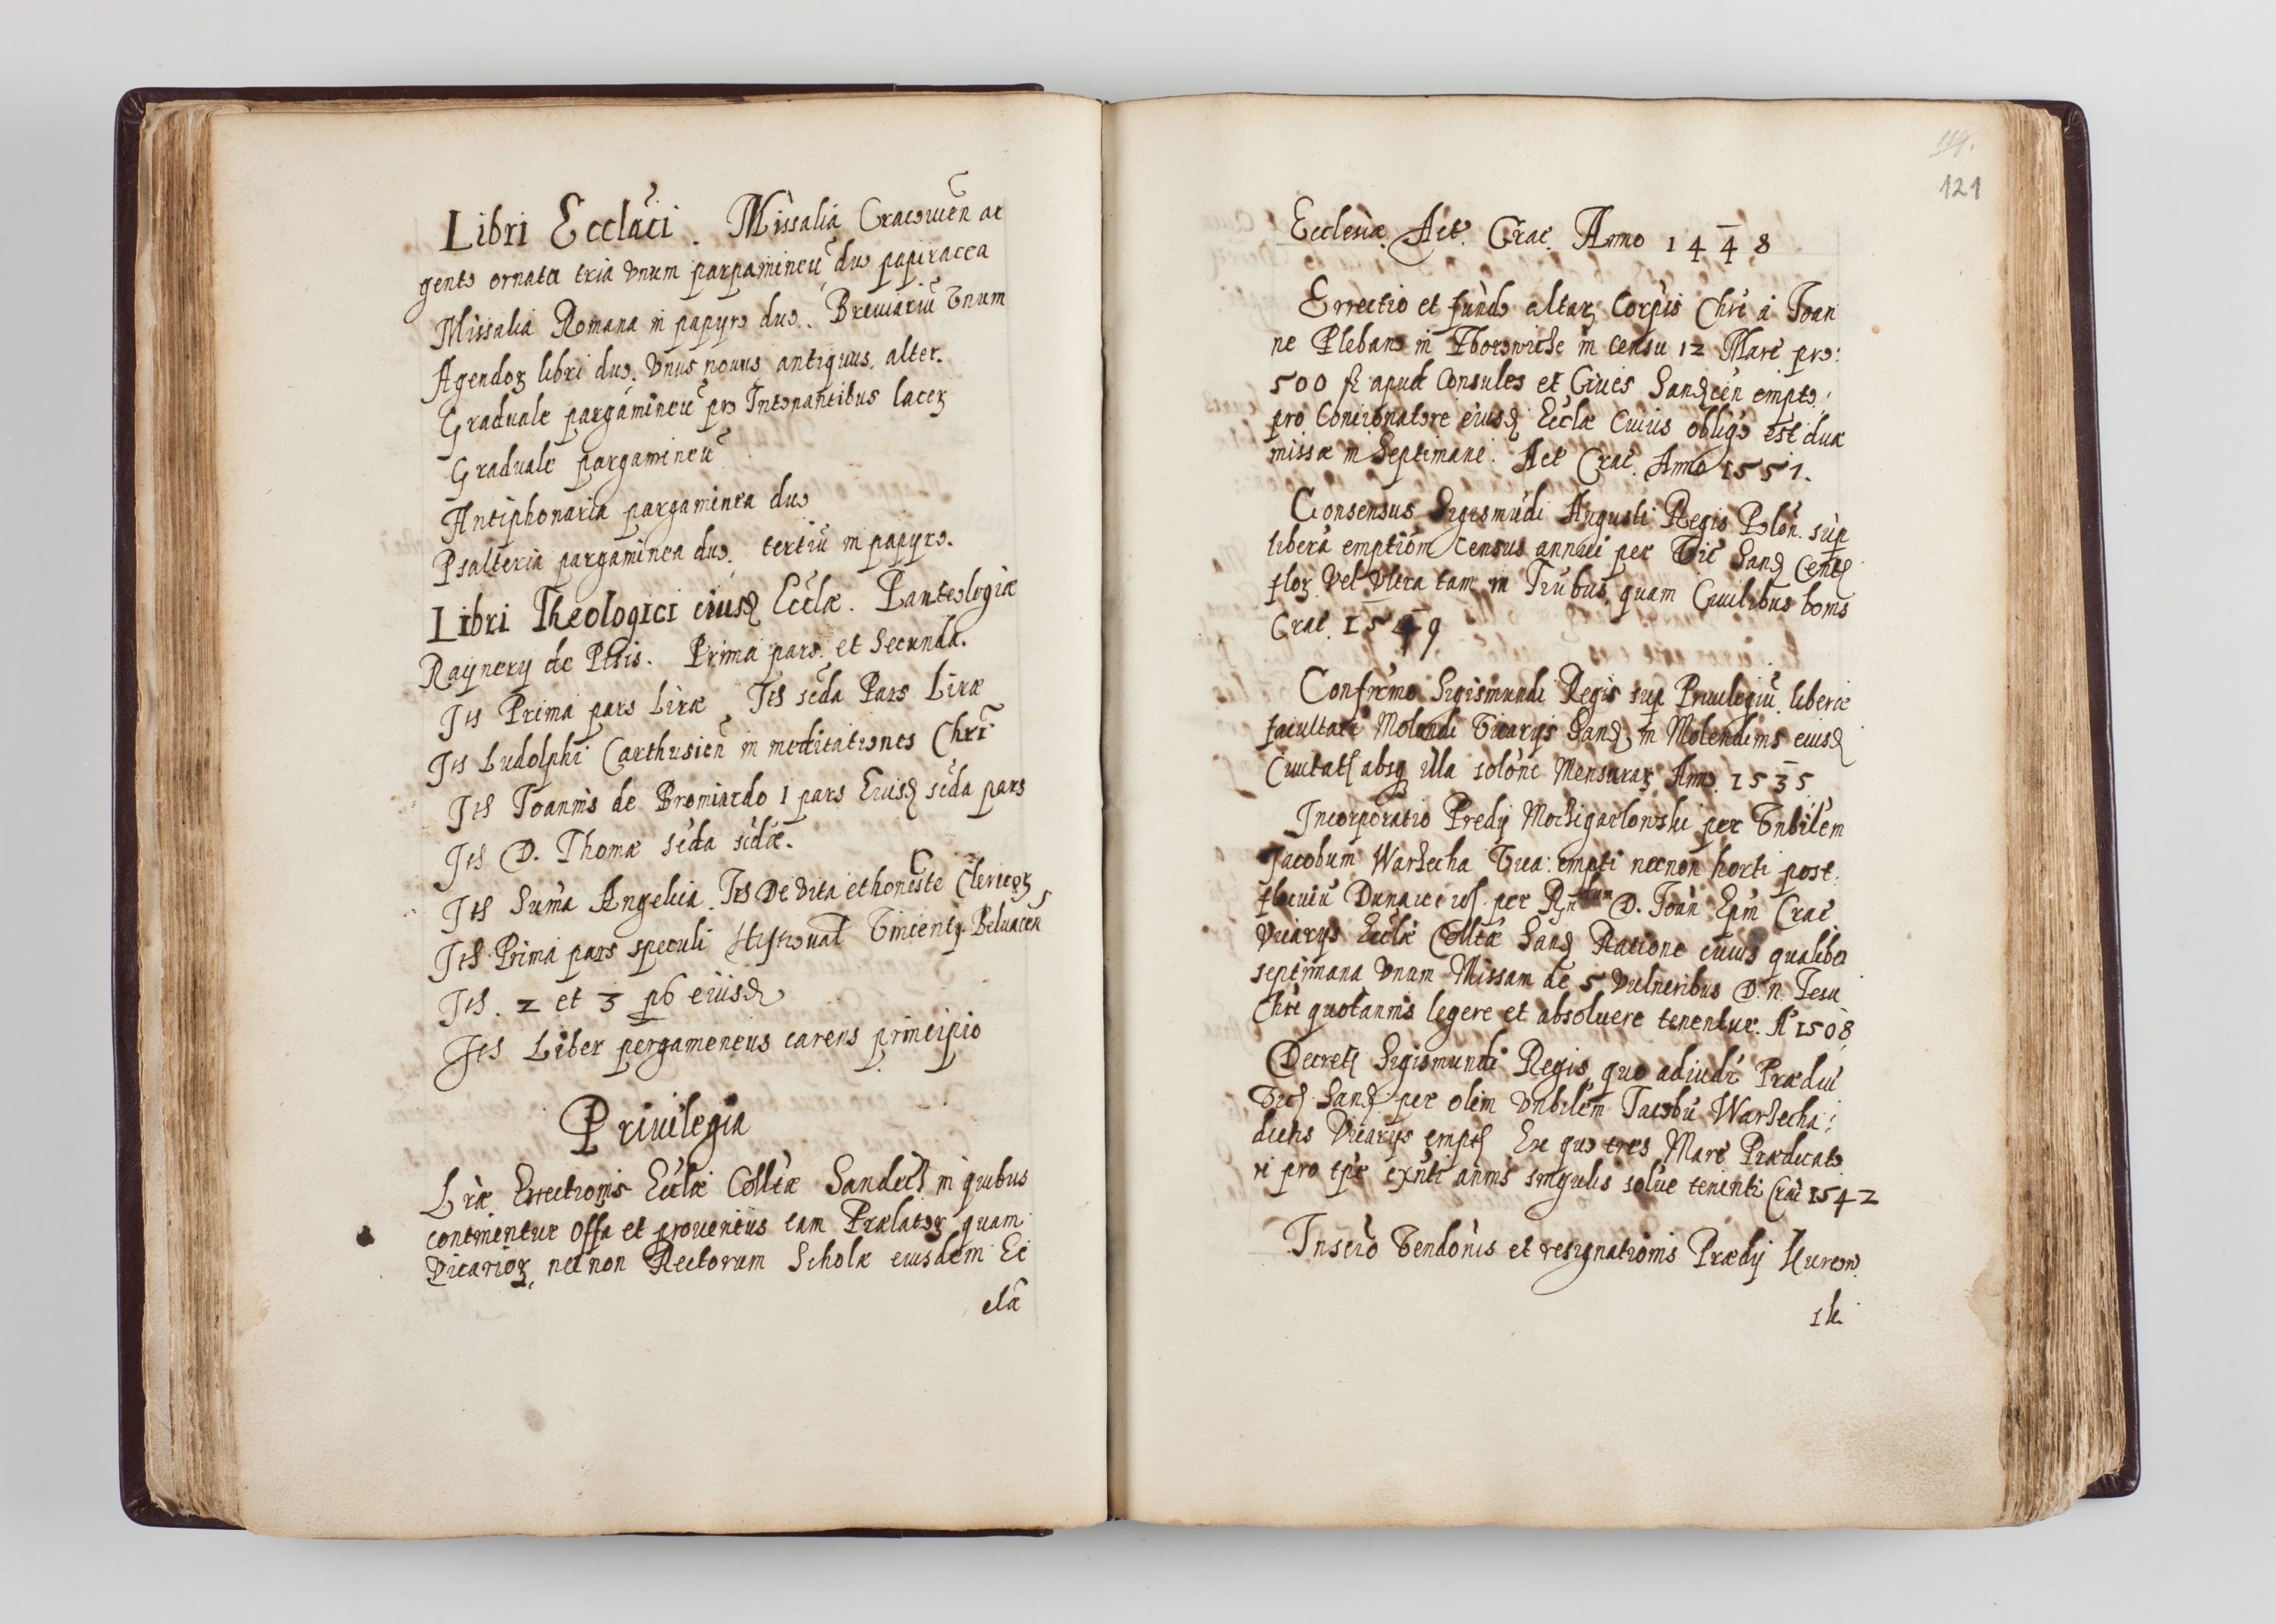 Libri Ecclãci. Missalia Cracouien̄ ar
gento ornata tria vnum pargamineū duo papiracea
Missalia Romana in papyro duo. Breuiariū Vnum
Agendoꝝ libri duo. Vnus nouus antiquus alter.
Graduale pargamineū pro Intonantibus laceꝝ
Graduale pargamineū
Antiphonaria pargaminea duo
Psalteria pargaminea duo. tertiū in papyro.
Libri Theologici eiusd Eccĺæ. Panteologia
Raynery de Pisis. Prima pars et Secunda.
Its Prima pars Liræ Its scd́a Pars Liræ
Its Ludolphi Carthusien̄ in meditationes Chrī
Its Joannis de Bromiardo 1 pars Eiusd scd́a pars
Its D. Thomæ scd́a scd́æ.
Its Suma Angelica. Its De vita et honeste Clericoꝝ
Its Prima pars speculi Historiual Vincenty Beluacen
Its. 2 et 3 ps eiusd
Its Liber pergameneus carens principio
Priuilegia
Lræ Errectionis Eccĺæ Colltæ Sandecs in quibus
continentur Offa et prouentus tam Prælatoꝝ quam
Vicarioꝝ necnon Rectorum Scholæ eiusdem Ec
clā
119.
121
Ecclesiæ. Act. Crac. Anno 1448
Errectio et fundo altaꝝ Corpis Chri a Joan
ne Plebano in in censu 12 Marc pro:
500 fl apud Consules et Ciues Sandcen empto.
pro Concionatore eiusd Eccĺæ Cuius obligo est duæ
missæ in Septimane. Act Crac. Anno 1551.
Consensus Sigismudi Augusti Regis Polon. sup
liberā emptiom census annui per Vic Sand Cents
floꝝ. Vel Vltra tam in Trubus, quam Ciuilibus bonis
Crac. 1549
Confrmo Sigismundi Regis sup Priuilegiū liberæ
facultate Molendi Vicarys Sand, in Molendinis eiusd
Ciuitats absq vlla solone Mensuraꝝ Anno. 1535
Incorporatio Predy per Vnbilem
Jacobum Warzecha Vica: empti necnon horti post
fluuiū per Rndum D. Joan Epm Crac
Vicarys Eccĺæ Colltæ Sand Ratione cuius qualibet
septimana vnum Missam de 5 Vulneribus D. n. Jesu
Chri quotannis legere et absoluere tenentur. Ao 1508
Decrets Sigismundi Regis quo adiudr Prædiū
Vics Sand per olim vnbilem Jacobū Warzecha:
dictis Vicarys empts Ex quo tres Marc Prædicato
ri pro tpe exnti annis singulis solue tenentr Crac 1542
Inscrō Vendonis et resignationis Prædy Hurow
sk.